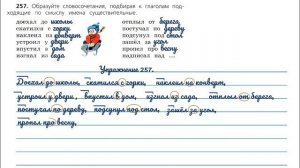 257. Образуйте словосочетания, подбирая к глаголам под-
ходящие по смыслу имена существительные.
доехал до школы
скатился с горки
наклеил на конверт
устроил у двери
впустил в дом
изгнал из сада
отплыл от берега
постучал по дереву
подсунул под стол
зашёл за угол
пропел про весну
надписал над ...
Упражнение 257.
Доехал до школы, скатился с горки, наклеил на конверт,
устроил у двери, впустил в дом, изгнал из сада, отплыл от берега,
постучал по дереву, подсунул под стол, зашёл за угол,
пропел про весну.